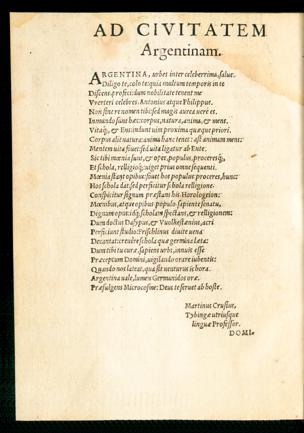 AD CIVITATEM
Argentinam.
ARGENTINA, urbes inter celeberrima, salue.
Diligo te, colo te: quia multum temporis in te
Discens profeci: dum nobilitate tenent me
Vuerteri celebres Antonius atque Philippus.
Non sine re nomen tibi: sed magis aurea uernas.
In mundo sunt hæc: corpus, natura, anima, et mens.
Vitaq́;, et Ens: indunt uim proxima quæque priori.
Corpus alit natura: anima hanc tenet: ast animam mens:
Mentem uita fouet: sed uita ligatur ab Ente.
Sic tibi mœnia sunt, et opes, populus, proceresq́;,
Et schola, relligioq́;: uiget prius omne sequenti.
Mœnia stant opibus: fouet hos populus proceres, hunc:
Hos schola dat: sed perficitur schola relligione.
Conspicitur signum præstans his Horologium:
Mœnibus, atque opibus populo sapiente senatu,
Dignum opus: id q́; scholam spectans, et relligionem:
Dum doctus Dasypus, et Vuolkesteinus, acri
Perficiunt studio: Frischlinus diuite uena
Decantat: creuere schola quæ germina læta:
Dum tibi tu curæ, sapiens urbs, innuit esse
Præceptum Domini, uigilando orare iubentis:
Quando nos lateat, qua sit uenturus is hora.
Argentina uale, lumen Germanidos oræ.
Præfulgens Microcosme: Deus te seruet ab hoste.
Martinus Crusius,
Tybingæ utriusque
linguæ Professor.
DOMI-